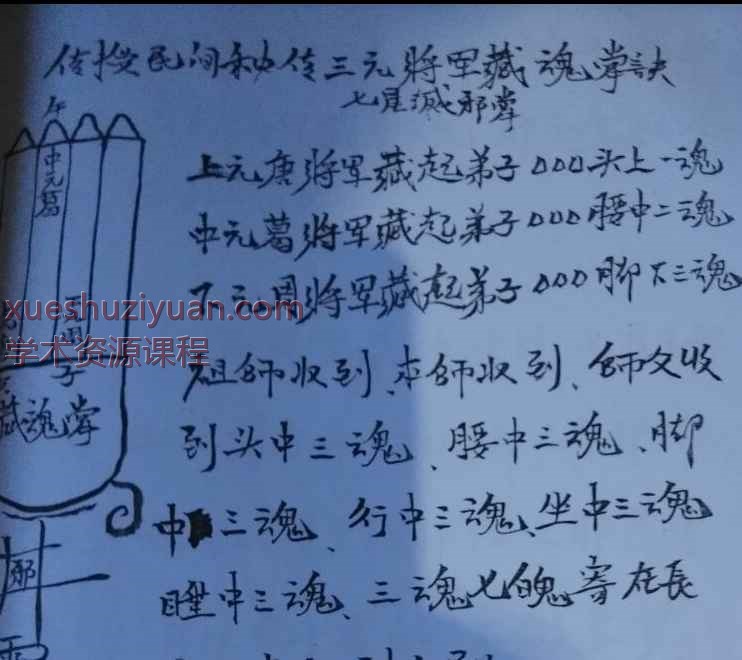 传授民间秘传三元将军藏魂掌诀
七星减邪掌
上元唐将军藏起弟子○○○头上一魂
中元葛将军藏起弟子○○○腰中二魂
下元周将军藏起弟子○○○脚下三魂
祖师收到、本师收到、师父收
到头中三魂、腰中三魂、脚
中三魂、行中三魂、坐中三魂
睡中三魂、三魂七魄寄在長
午
中元葛
子
藏魂掌
邪
xueshuziyuan.com
学术资源课程